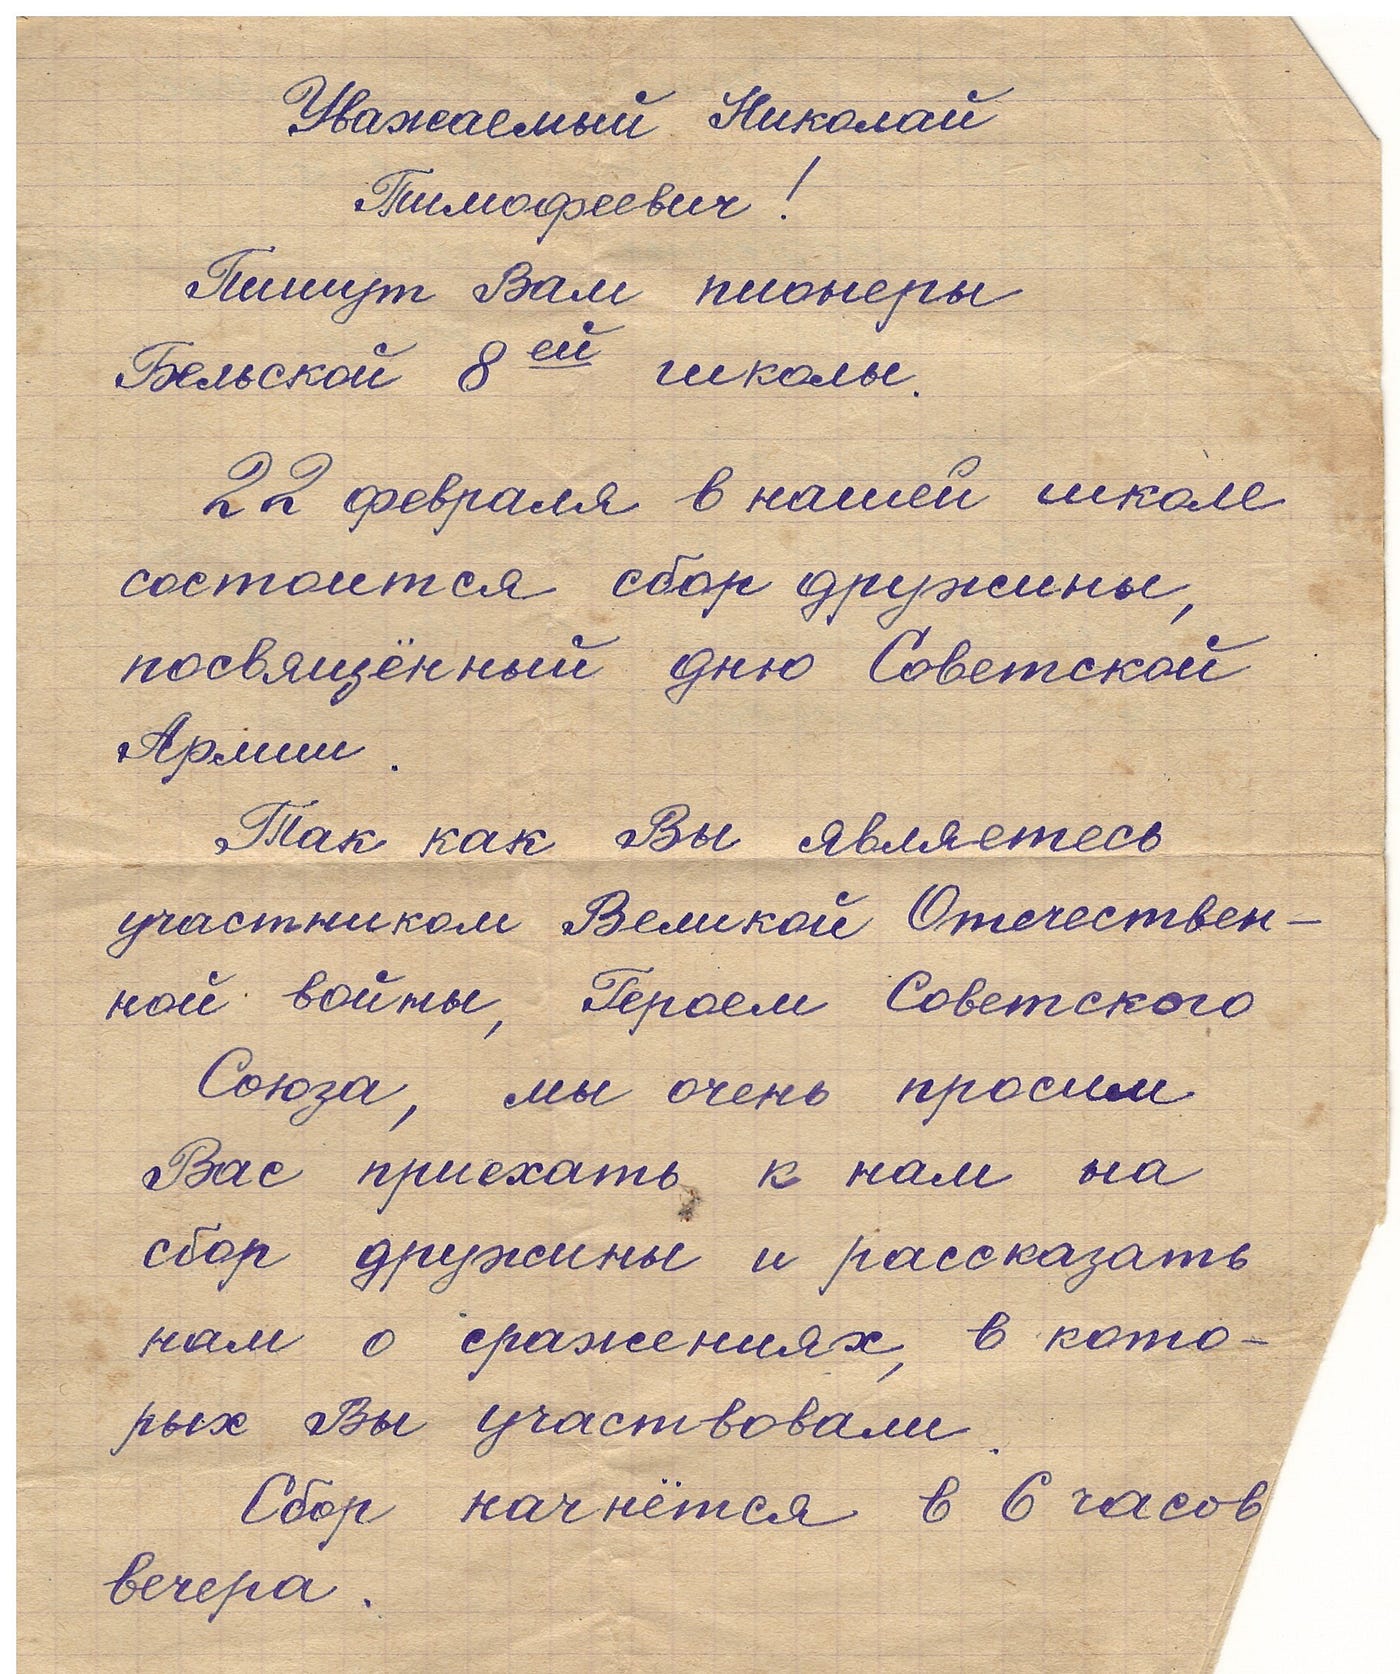 Уважаемый Николай
Тимофеевич!
Пишут Вам пионеры
Бельской 8ей школы.
22 февраля в нашей школе
состоится сбор дружины,
посвящённый дню Советской
Армии.
Так как Вы являетесь
участником Великой Отечествен-
ной войны, Героем Советского
Союза, мы очень просим
Вас приехать к нам на
сбор дружины и рассказать
нам о сражениях, в кото-
рых Вы участвовали.
Сбор начнётся в 6 часов
вечера.